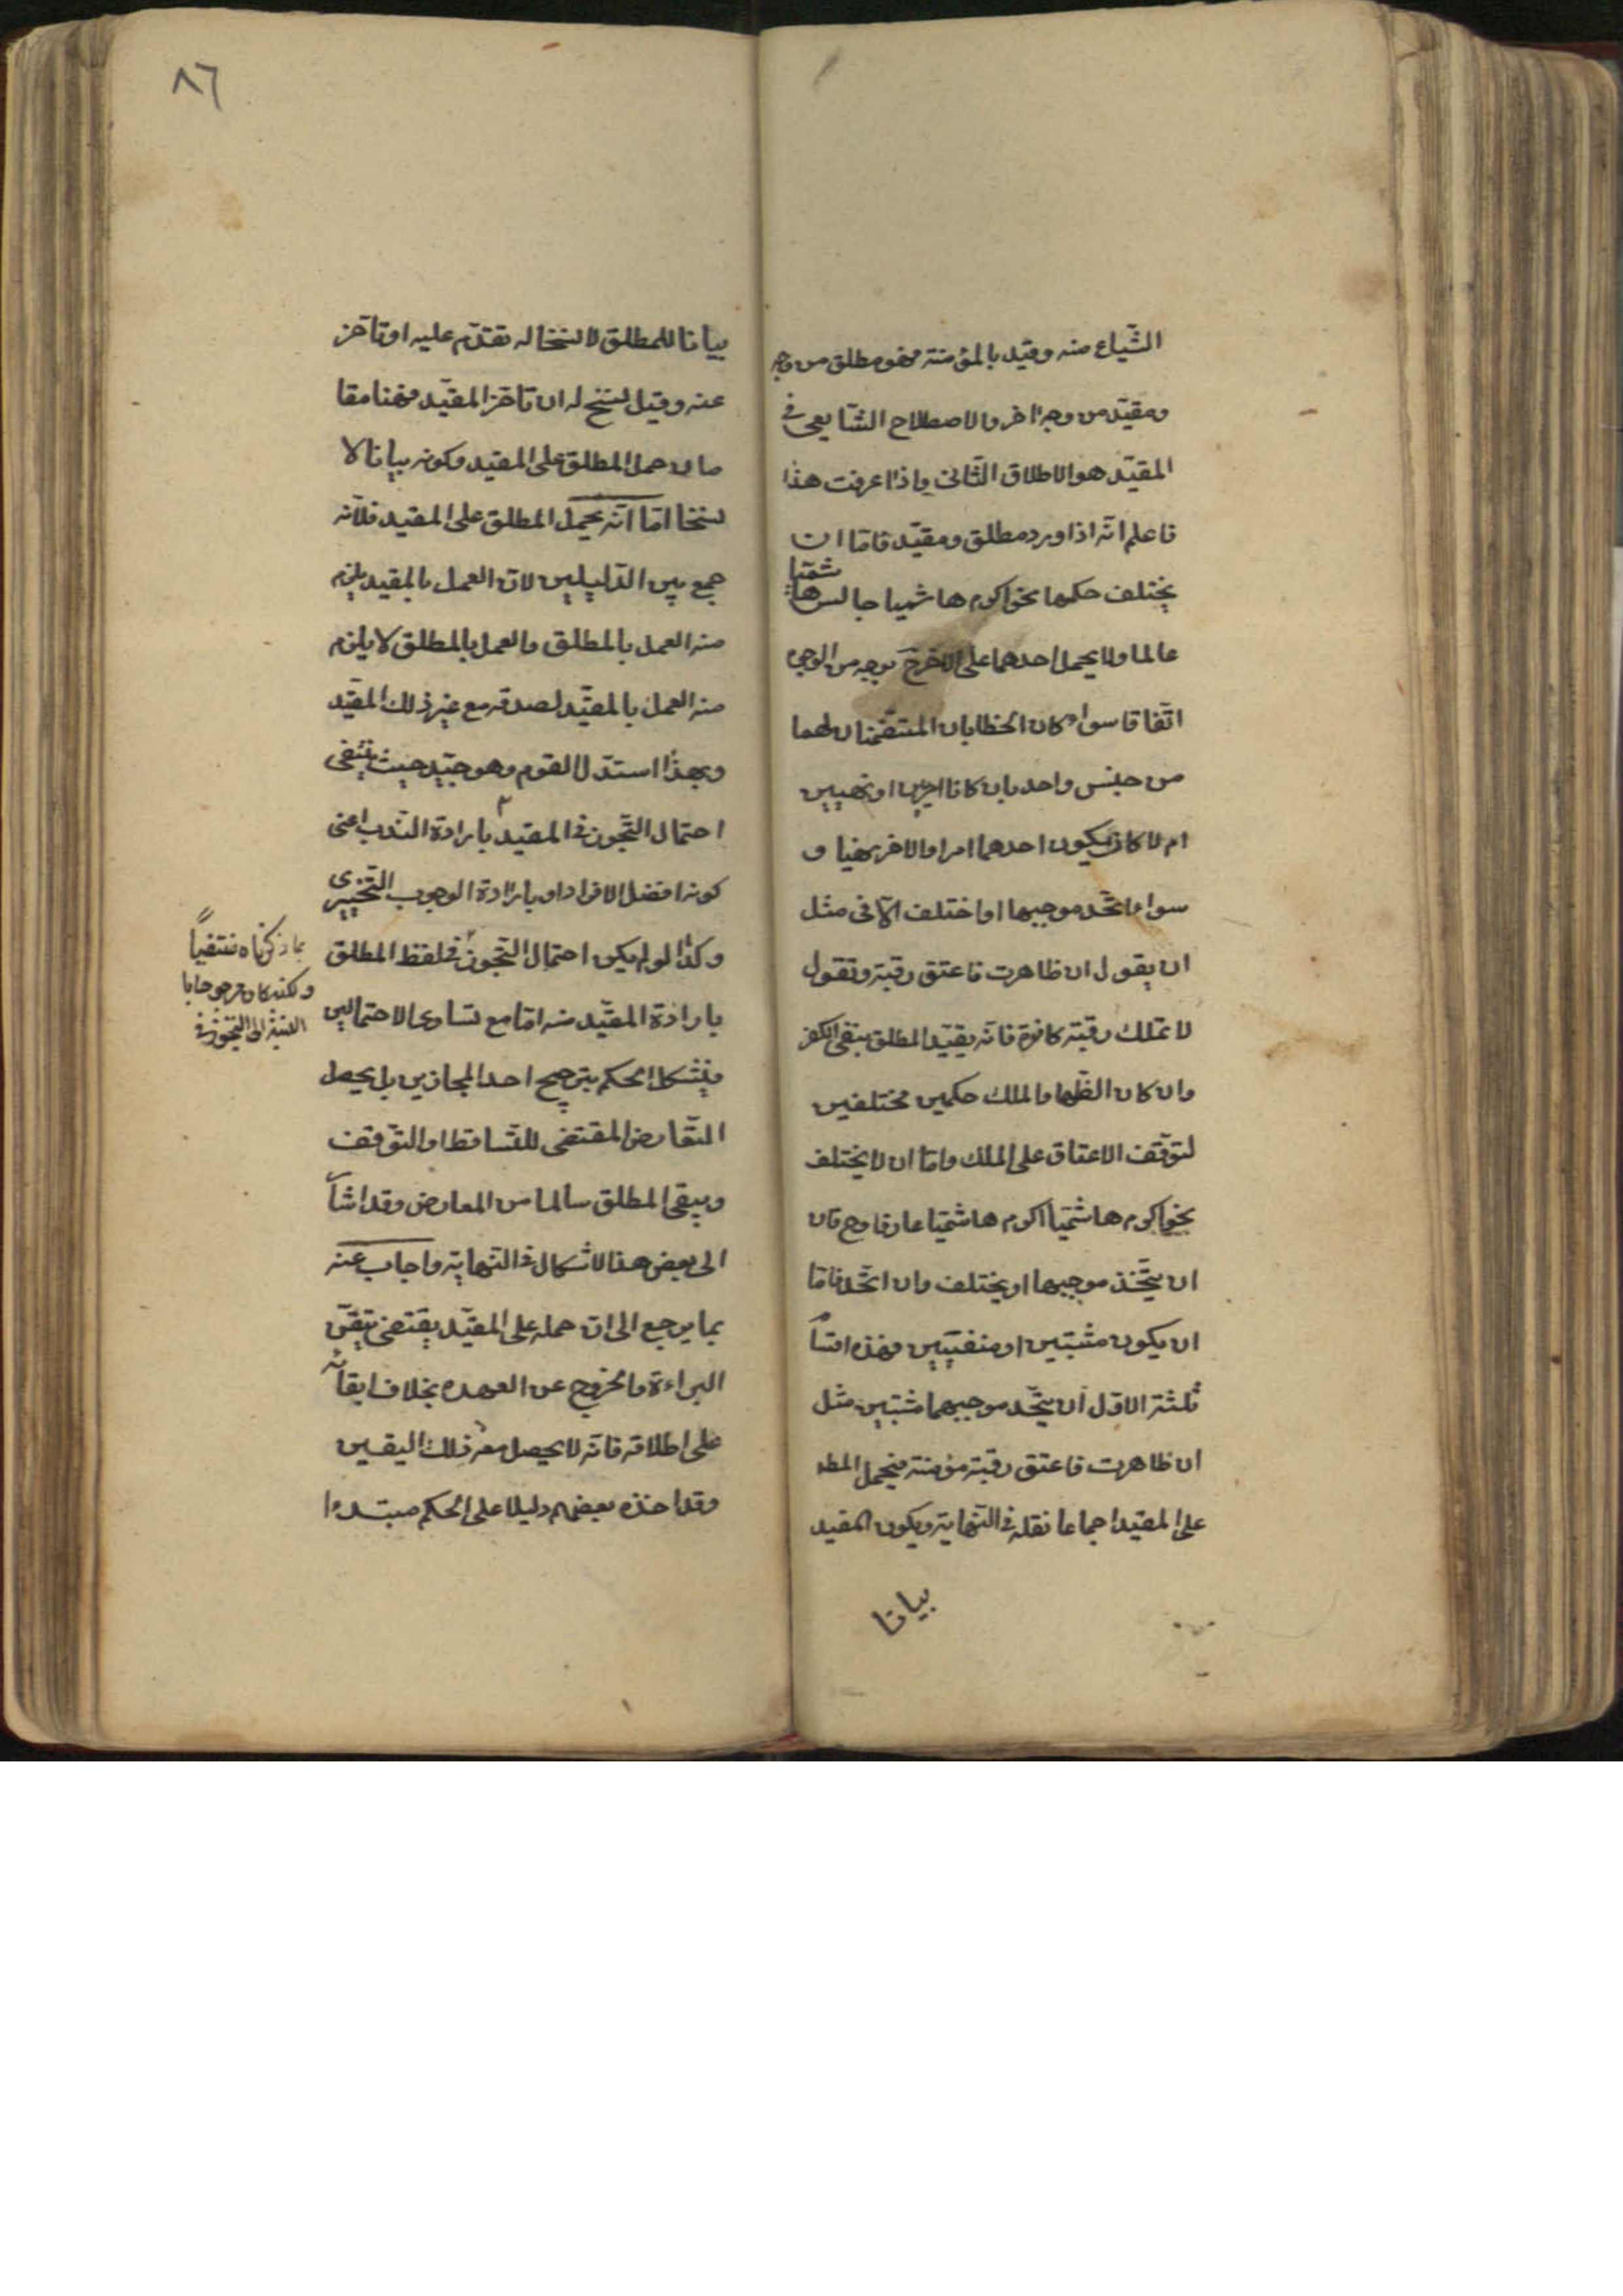 الشّياع منه وقيّد بالمؤمنة فهو مطلق من وجه
ومقيّد من وجه اخر والاصطلاح الشّايع في
المقيّد هو الاطلاق الثّاني واذا عرفت هذا
فاعلم انّه اذا ورد مطلق ومقيّد فامّا ان
يختلف حكمهما نحو اكرم هاشميا جالس هاشميّا
عالما ولا يحمل احدهما على الاخر ح بوجه من الوجوه
اتّفاقا سواء كان الخطابان المتضمّنان لهما
من جنس واحد بان كانا امرين او نهيين
ام لا كان يكون احدهما امرا والاخر نهيا و
سواء اتّحد موجبهما او اختلف الّا في مثل
ان يقول ان ظاهرت فاعتق رقبة وتقول
لا تملك رقبة كافرة فانّه يقيّد المطلق بنفي الكفر
وان كان الظّهار والملك حكمين مختلفين
لتوقّف الاعتاق على الملك وامّا ان لا يختلف
نحو اكرم هاشميّا اكرم هاشميّا عارفا وح فان
ان يتّحد موجبهما او يختلف وان اتّحد فامّا
ان يكون مثبتين او منفيّين فهذه اقسا
ثلثة الاوّل ان يتّحد موجبهما مثبتين مثل
ان ظاهرت فاعتق رقبة مؤمنة فيحمل المط
على المقيد اجماعا نقله في النّهاية ويكون المقيد
بيانا
٨٦
بيانا للمطلق لا نسخا له تقدّم عليه او تاخّر
عنه وقيل نسخ له ان تاخّر المقيّد فهنا مقا
مان حمل المطلق على المقيد وكونه بيانا لا
نسخا امّا انّه يحمل المطلق على المقيد فلانّه
جمع بين الدّليلين لانّ العمل بالمقيد يلزم
منه العمل بالمطلق والعمل بالمطلق لا يلزم
منه العمل بالمقيّد لصدقه مع غير ذلك المقيّد
وبهذا استدلّ القوم وهو جيّد حيث ينتفى
احتمال التّجوز في المقيد بارادة النّدب اعنى
كونه افضل الافراد او بارادة الوجوب التّخييرى
وكذا لو لم يكن احتمال التّجوز في لفظ المطلق
بما ذكرناه منتفياً
ولكنه كان مرجوحا با
لنسبة الى التجوز في
بارادة المقيّد منه امّا مع تساوى الاحتمالين
فيشكل الحكم بترجيح احد المجازين بل يحصل
التّعارض المقتضى للتّساقط او التوّقف
ويبقى المطلق سالما من المعارض وقد اشا
الى بعض هذا الاشكال في النّهاية واجاب عنه
بما يرجع الى انّ حمله على المقيّد يقتضى تيقّن
البراءة والخروج عن العهده بخلاف ابقائه
على اطلاقه فانّه لا يحصل معه ذلك اليقين
وقد اخذه بعضهم دليلا على الحكم مبتدءا